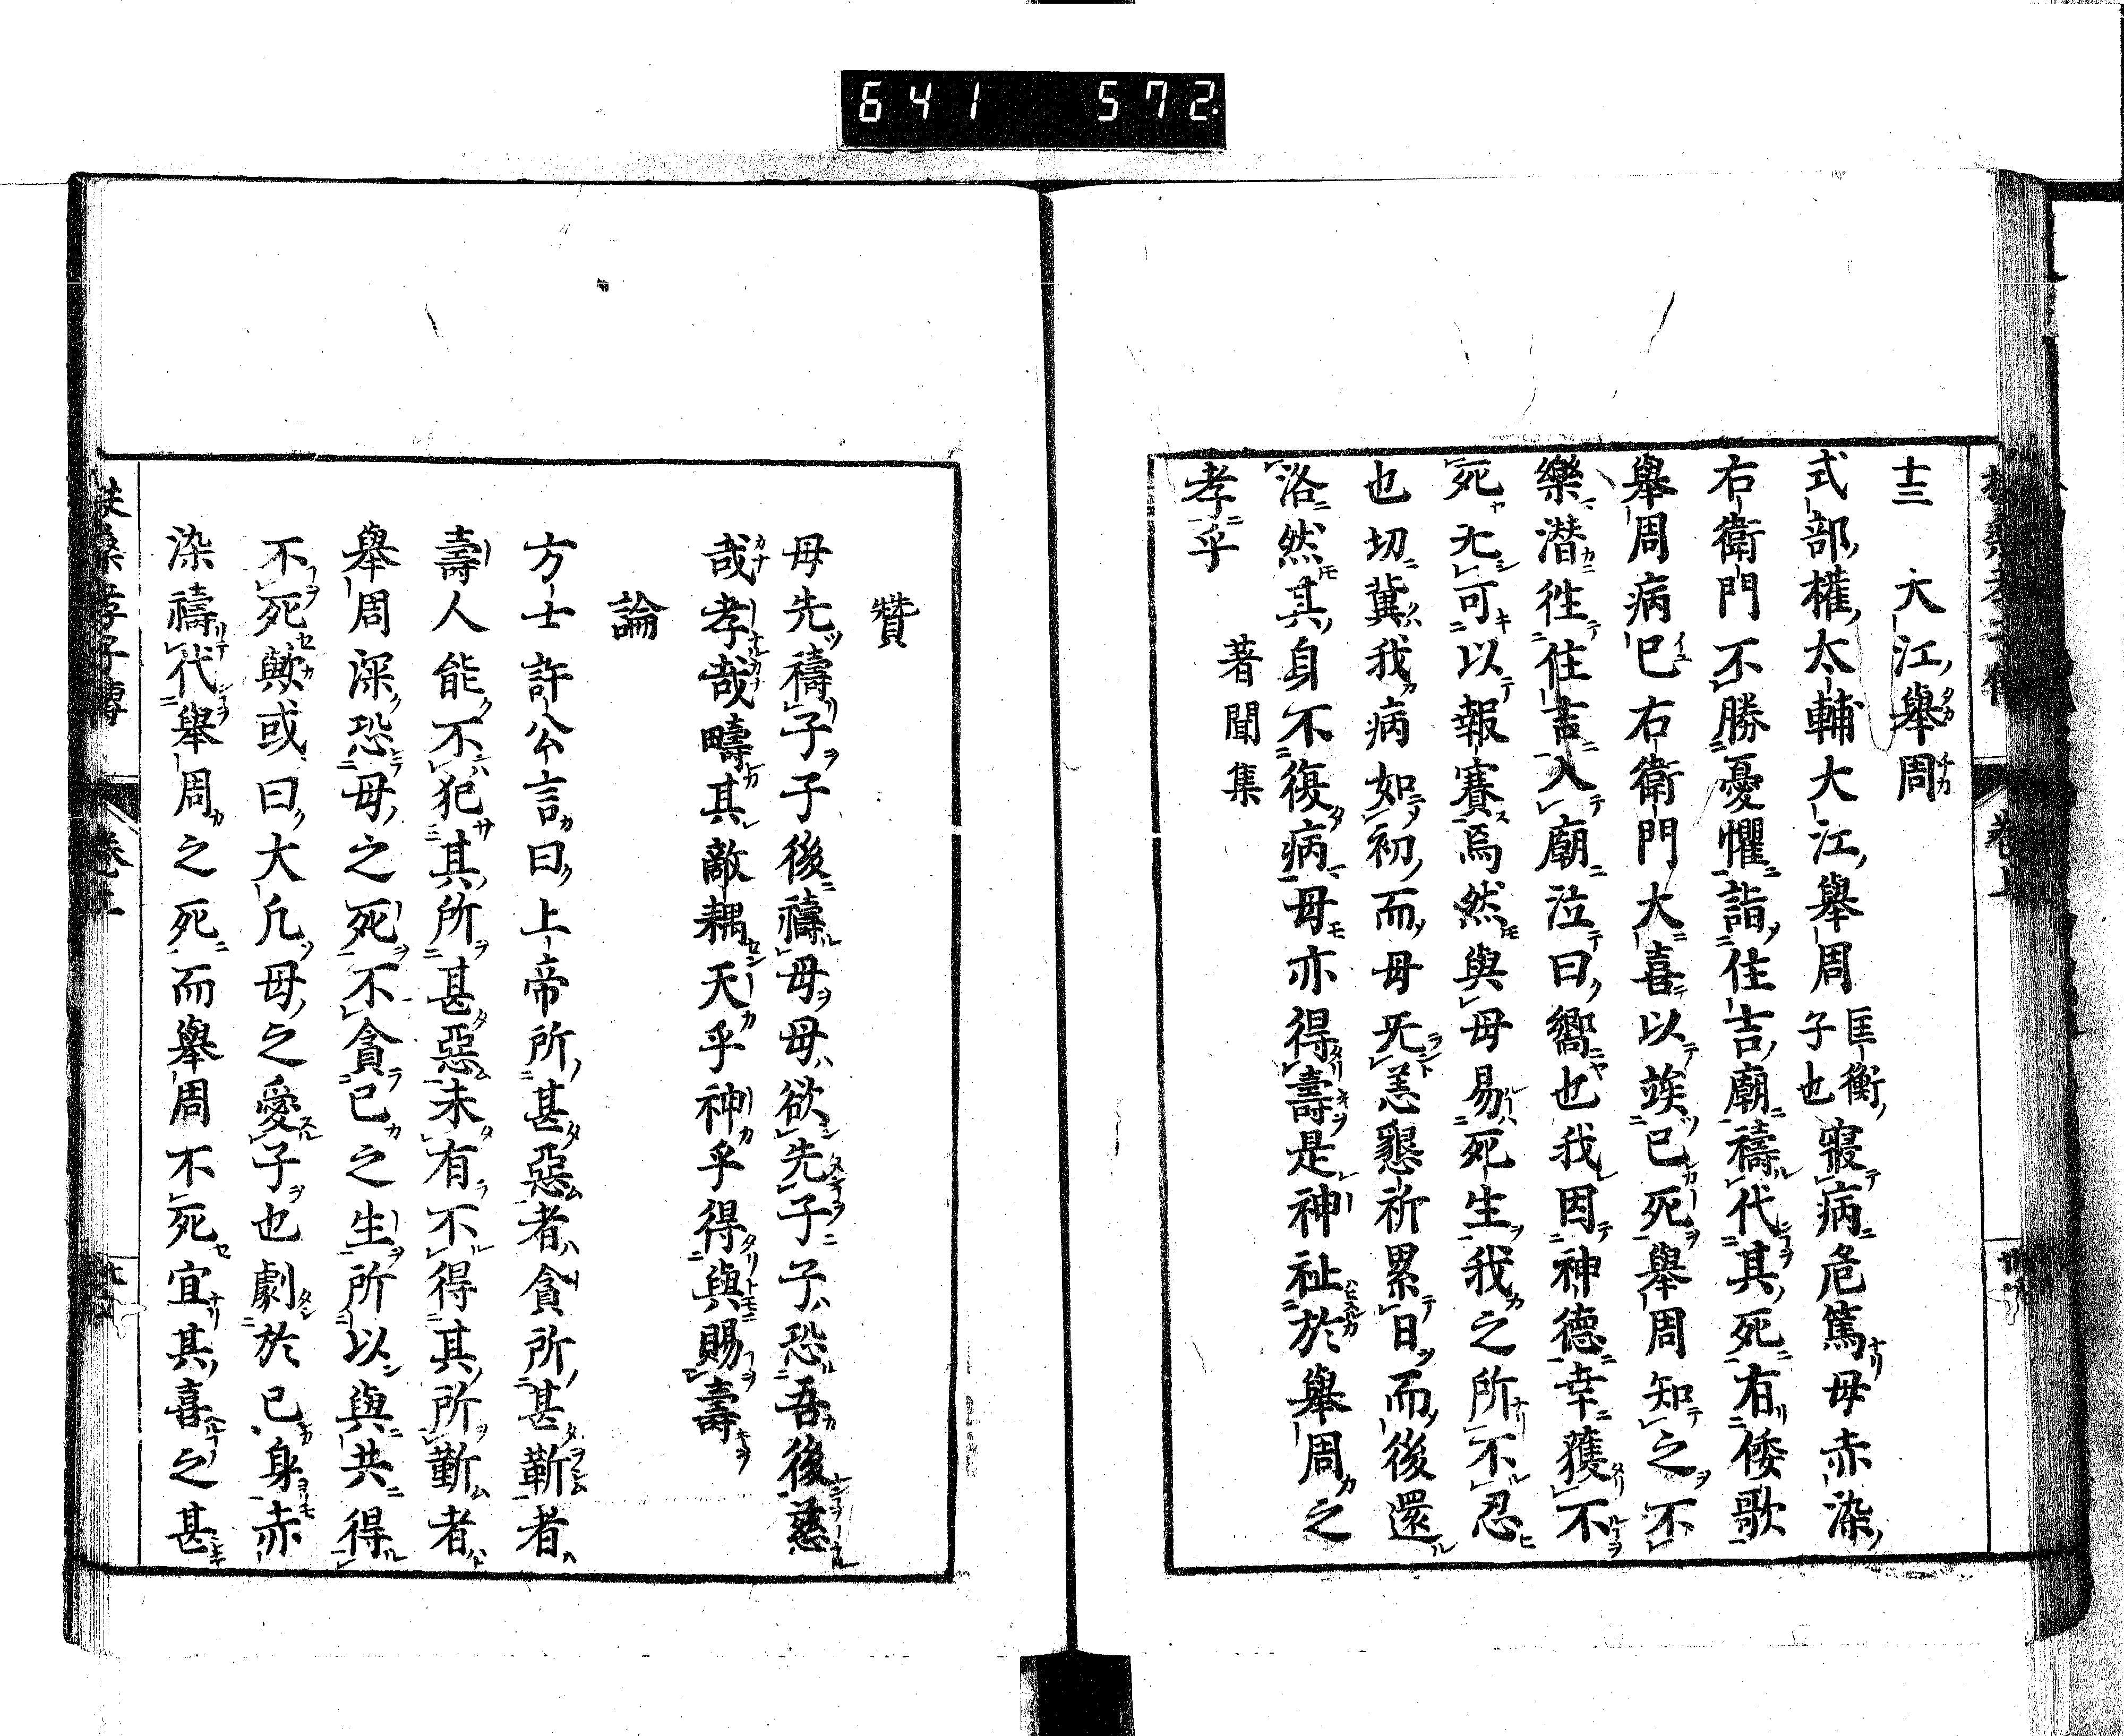 641 572
十三 大江舉周
式部權太輔大江舉周匡衡子也寢病危篤母赤染
右衛門不勝憂懼詣住吉廟禱代其死有倭歌
舉周病已右衛門大喜以竢已死舉周知之不
樂潛徃住吉入廟泣曰嚮也我因神德幸獲不
死无可以報賽焉然與母易死生我之所不忍
也切冀我病如初而母旡恙懇祈累日而後還
洛然其身不復病母亦得壽是神祉於舉周之
孝乎 著聞集
贊
母先禱子子後禱母母欲先子子恐吾後慈
哉孝哉疇其敵耦天乎神乎得與賜壽
論
方士許公言曰上帝所甚惡者貪所甚靳者
壽人能不犯其所甚惡未有不得其所靳者
舉周深恐母之死不貪已之生所以與共得
不死歟或曰大凢母之愛子也劇於已身赤
染禱代舉周之死而舉周不死宜其喜之甚
扶桑孝子傳 卷上